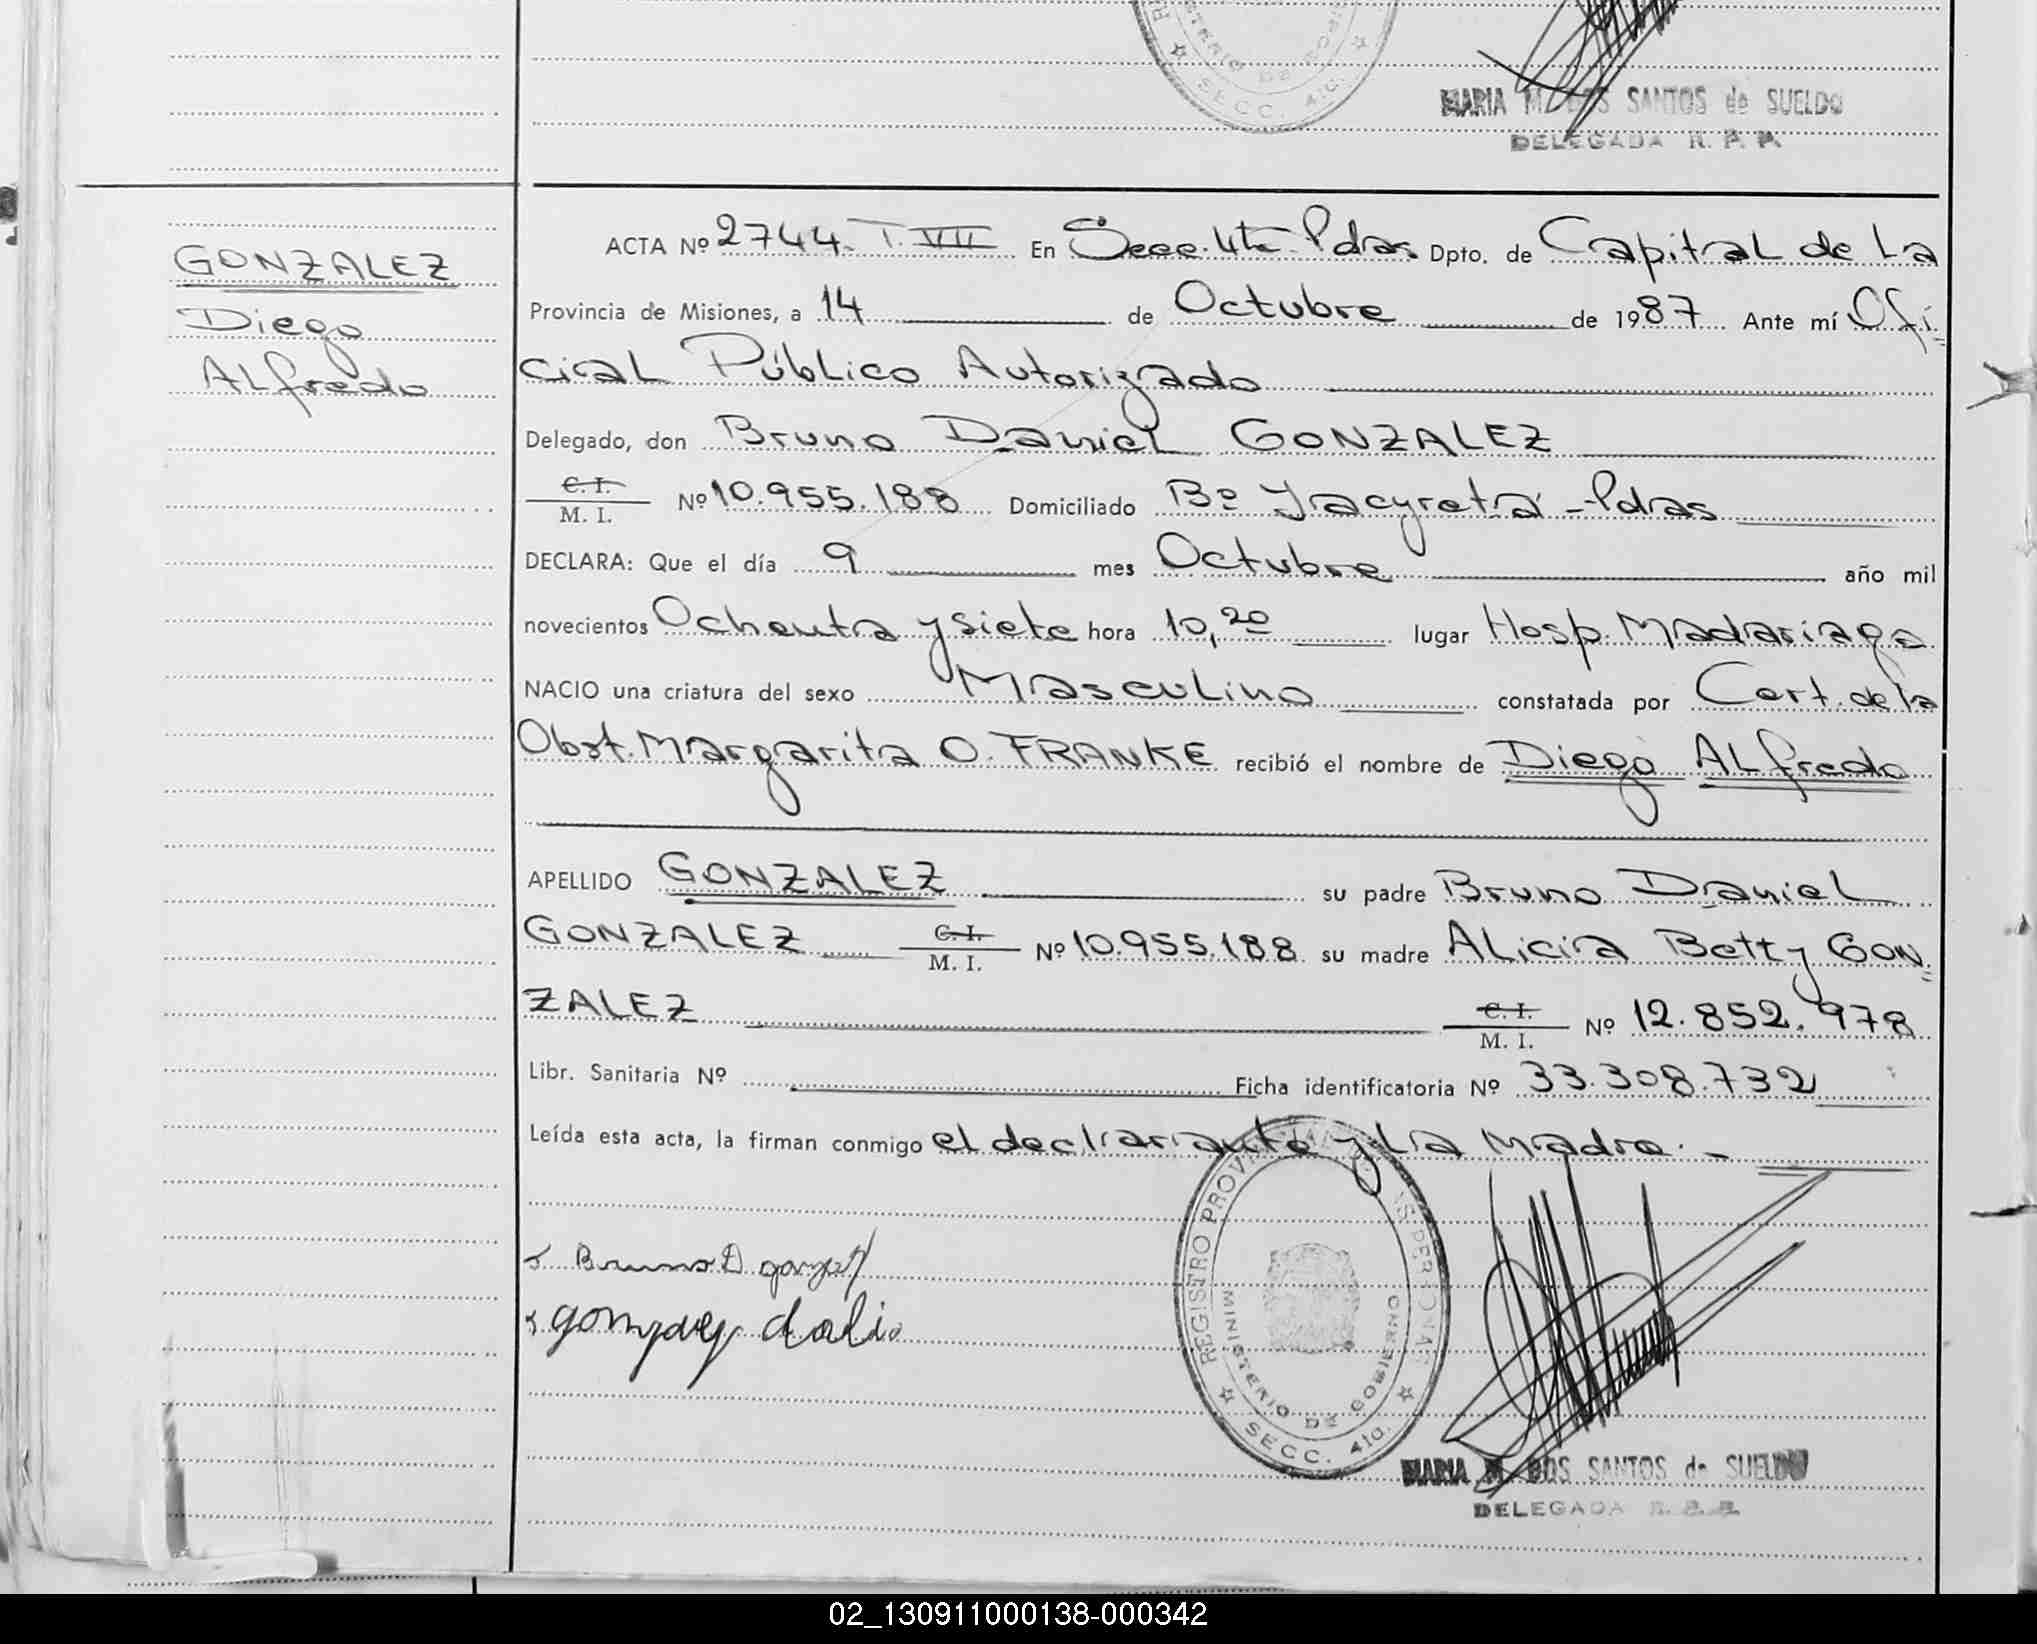 REGISTRO
MINISTERIO DE GOBIERNO
SECC. 4ta.
MARIA M. DOS SANTOS de SUELDO
DELEGADA R. P. P.
GONZALEZ
Diego
Alfredo
ACTA Nº 2744 T. VII En Secc. 4ta Pdas. Dpto. de Capital de la
Provincia de Misiones, a 14 de Octubre de 1987 Ante mí Ofi=
cial Público Autorizado
Delegado, don Bruno Daniel GONZALEZ
C. I.
M. I. Nº 10.955.188 Domiciliado Bº Yacyretá - Pdas
DECLARA: Que el día 9 mes Octubre año mil
novecientos Ochenta y siete hora 10,20 lugar Hosp. Madariaga
NACIO una criatura del sexo Masculino constatada por Cert. de la
Obst. Margarita O. FRANKE recibió el nombre de Diego Alfredo
APELLIDO GONZALEZ su padre Bruno Daniel
GONZALEZ C. I. M. I. Nº 10.955.188 su madre Alicia Betty GON=
ZALEZ C. I. M. I. Nº 12.852.978
Libr. Sanitaria Nº Ficha identificatoria Nº 33.308.732
Leída esta acta, la firman conmigo el declarante y la Madre. -
Bruno D
REGISTRO PROVINCIAL DE LAS PERSONAS
MINISTERIO DE GOBIERNO
SECC. 4ta.
MARIA M. DOS SANTOS de SUELDO
DELEGADA R. P. P.
02_130911000138-000342